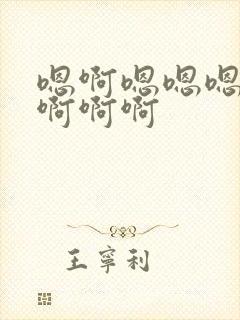 嗯啊嗯嗯嗯
啊啊啊
王寧利